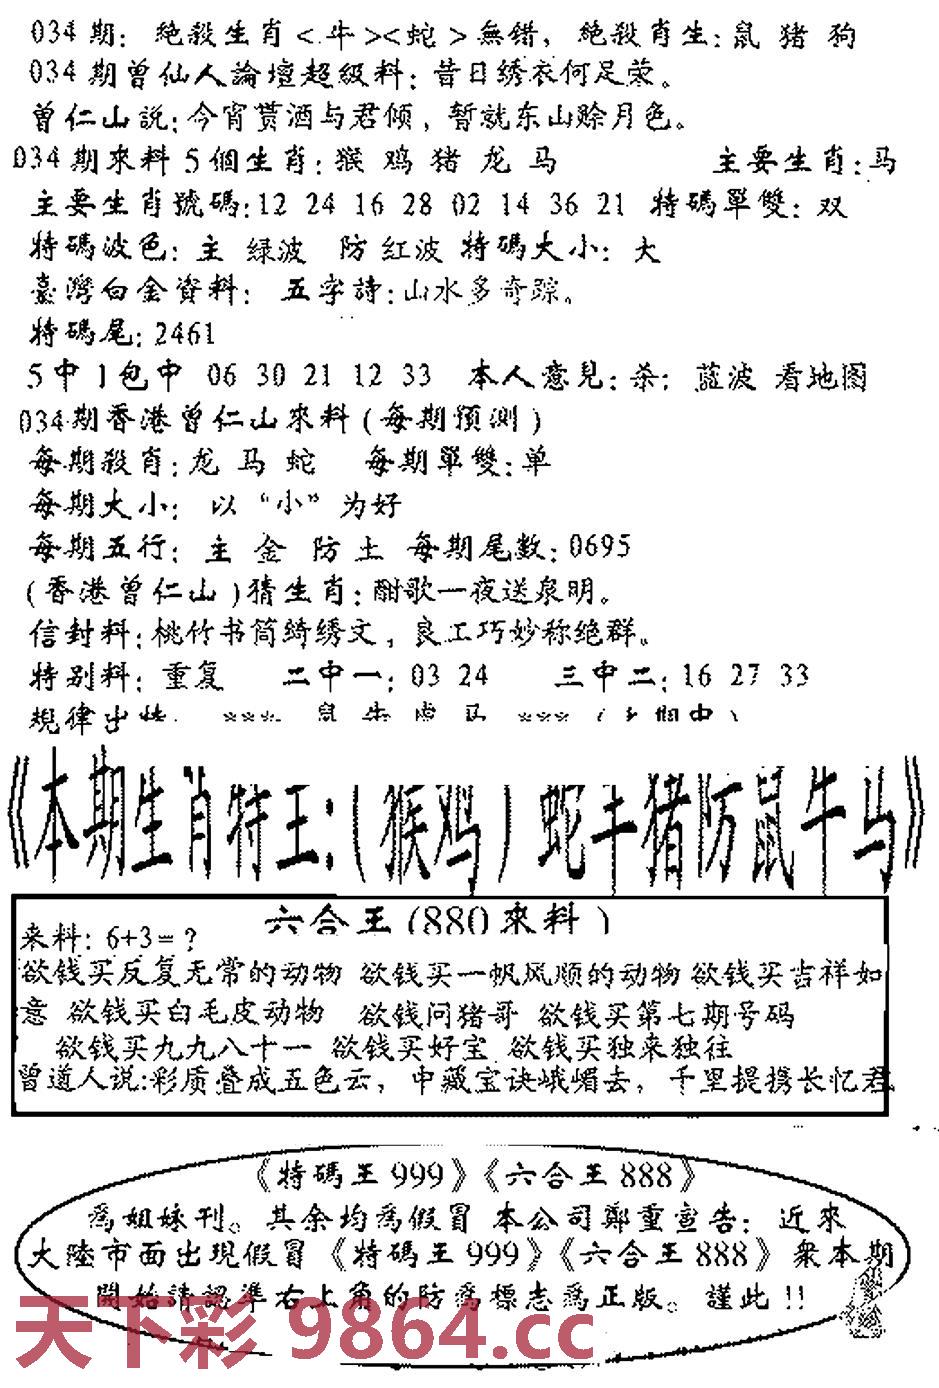 034期: 絶殺生肖<牛><蛇>無错, 絶殺肖生:鼠 猪 狗
034期曾仙人論壇超級料:昔日绣衣何足荣。
曾仁山説:今宵贳酒与君倾, 暂就东山赊月色。
034期來料 5個生肖:猴 鸡 猪 龙 马 主要生肖:马
主要生肖號碼:12 24 16 28 02 14 36 21 特碼單雙: 双
特碼波色: 主 绿波 防 红波 特碼大小: 大
臺灣白金資料: 五字詩:山水多奇踪。
特碼尾:2461
5中1包中 06 30 21 12 33 本人意見:杀: 蓝波 看地图
034期香港曾仁山來料(每期預測)
每期殺肖:龙 马 蛇 每期單雙:单
每期大小: 以“小”为好
每期五行: 主 金 防 土 每期尾数:0695
(香港曾仁山)猜生肖:酣歌一夜送泉明。
信封料:桃竹书筒绮绣文, 良工巧妙称绝群。
特别料: 重复 二中一: 03 24 三中二:16 27 33
規律出特: *** 鼠 牛 虎 马 ***
《本期生肖特王:(猴鸡)蛇羊猪防鼠牛马》
六合王(880來料)
来料: 6+3=?
欲钱买反复无常的动物 欲钱买一帆风顺的动物 欲钱买吉祥如
意 欲钱买白毛皮动物 欲钱问猪哥 欲钱买第七期号码
欲钱买九九八十一 欲钱买好宝 欲钱买独来独往
曾道人说:彩质叠成五色云, 中藏宝诀峨嵋去, 千里提携长忆君
《特碼王999》《六合王888》
為姐妹刊。其余均為假冒 本公司鄭重宣告: 近來
大陸市面出現假冒《特碼王999》《六合王888》衆本期
開始請認準右上角的防為標志為正版。謹此!!
天下彩 9864.cc